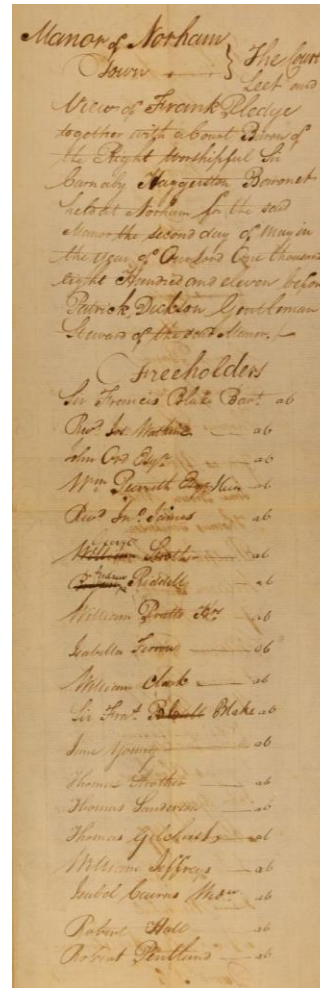 Manor of Norham
Town } The Court
Leet and
View of Frank Pledge
together with a Court Baron of
the Right Worshipful Sir
Carnaby Haggerston Baronet
held at Norham for the said
Manor the second day of May in
the year of Our Lord One thousand
eight Hundred and eleven before
Patrick Dickson Gentleman
Steward of the said Manor.
Freeholders
Sir Francis Blake Bart. ab
Revd. Jos. Watkins — ab
John Ord Esqr. — ab
Wm. Esqr. Heir — ab
Revd. Jno. James — ab
George — ab
Andrew Riddell — ab
William Pratts Hrs — ab
Isabella — ab
William Clark — ab
Sir Fras. Blake ab
Jane Young — ab
Thomas Strother — ab
Thomas Sanderson — ab
Thomas Gilchrist — ab
William Jeffreys — ab
Isabel Cairns Widw. ab
Robert Hall — ab
Robert Pentland — ab